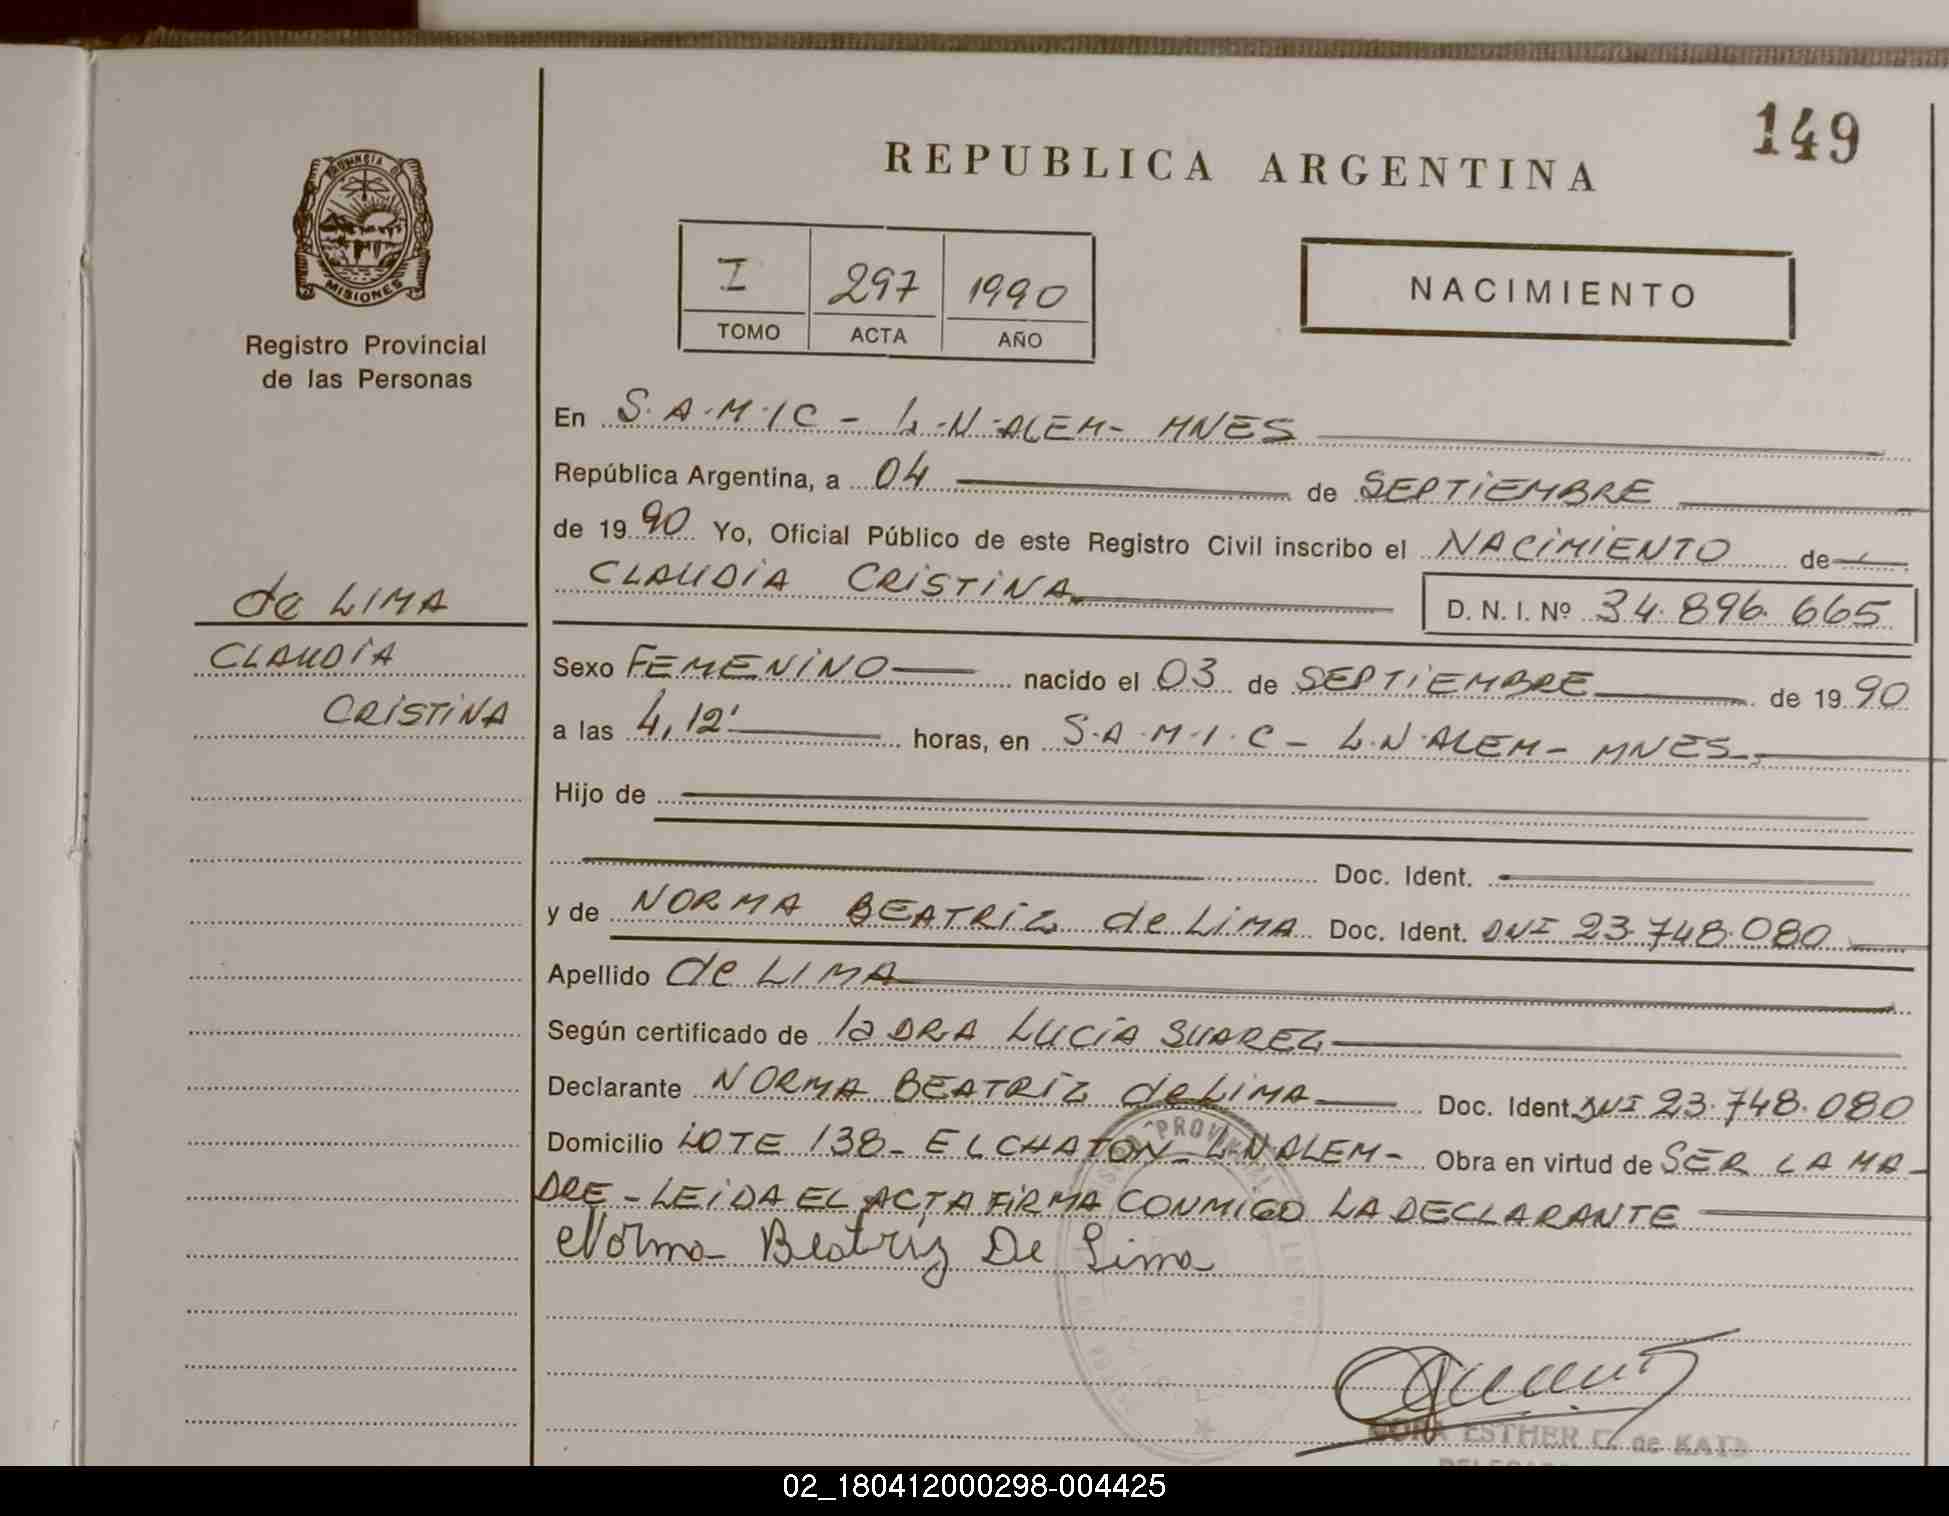 149
REPUBLICA ARGENTINA
PROVINCIA DE
MISIONES
Registro Provincial
de las Personas
I 297 1990
TOMO ACTA AÑO
NACIMIENTO
En S.A.M.I.C - L.N.ALEM - MNES
República Argentina, a 04 de SEPTIEMBRE
de 1990 Yo, Oficial Público de este Registro Civil inscribo el NACIMIENTO de
CLAUDIA CRISTINA D. N. I. Nº 34.896.665
de LIMA
CLAUDIA
CRISTINA
Sexo FEMENINO nacido el 03 de SEPTIEMBRE de 1990
a las 4,12' horas, en S.A.M.I.C - L.N.ALEM - MNES
Hijo de
Doc. Ident.
y de NORMA BEATRIZ de LIMA Doc. Ident. DNI 23.748.080
Apellido de LIMA
Según certificado de la DRA LUCIA SUAREZ
Declarante NORMA BEATRIZ de LIMA Doc. Ident. DNI 23.748.080
Domicilio LOTE 138 - EL CHATON - L.N ALEM - Obra en virtud de SER LA MA-
DRE - LEIDA EL ACTA FIRMA CONMIGO LA DECLARANTE
Norma Beatriz De Lima
ESTHER G. de
02_180412000298-004425